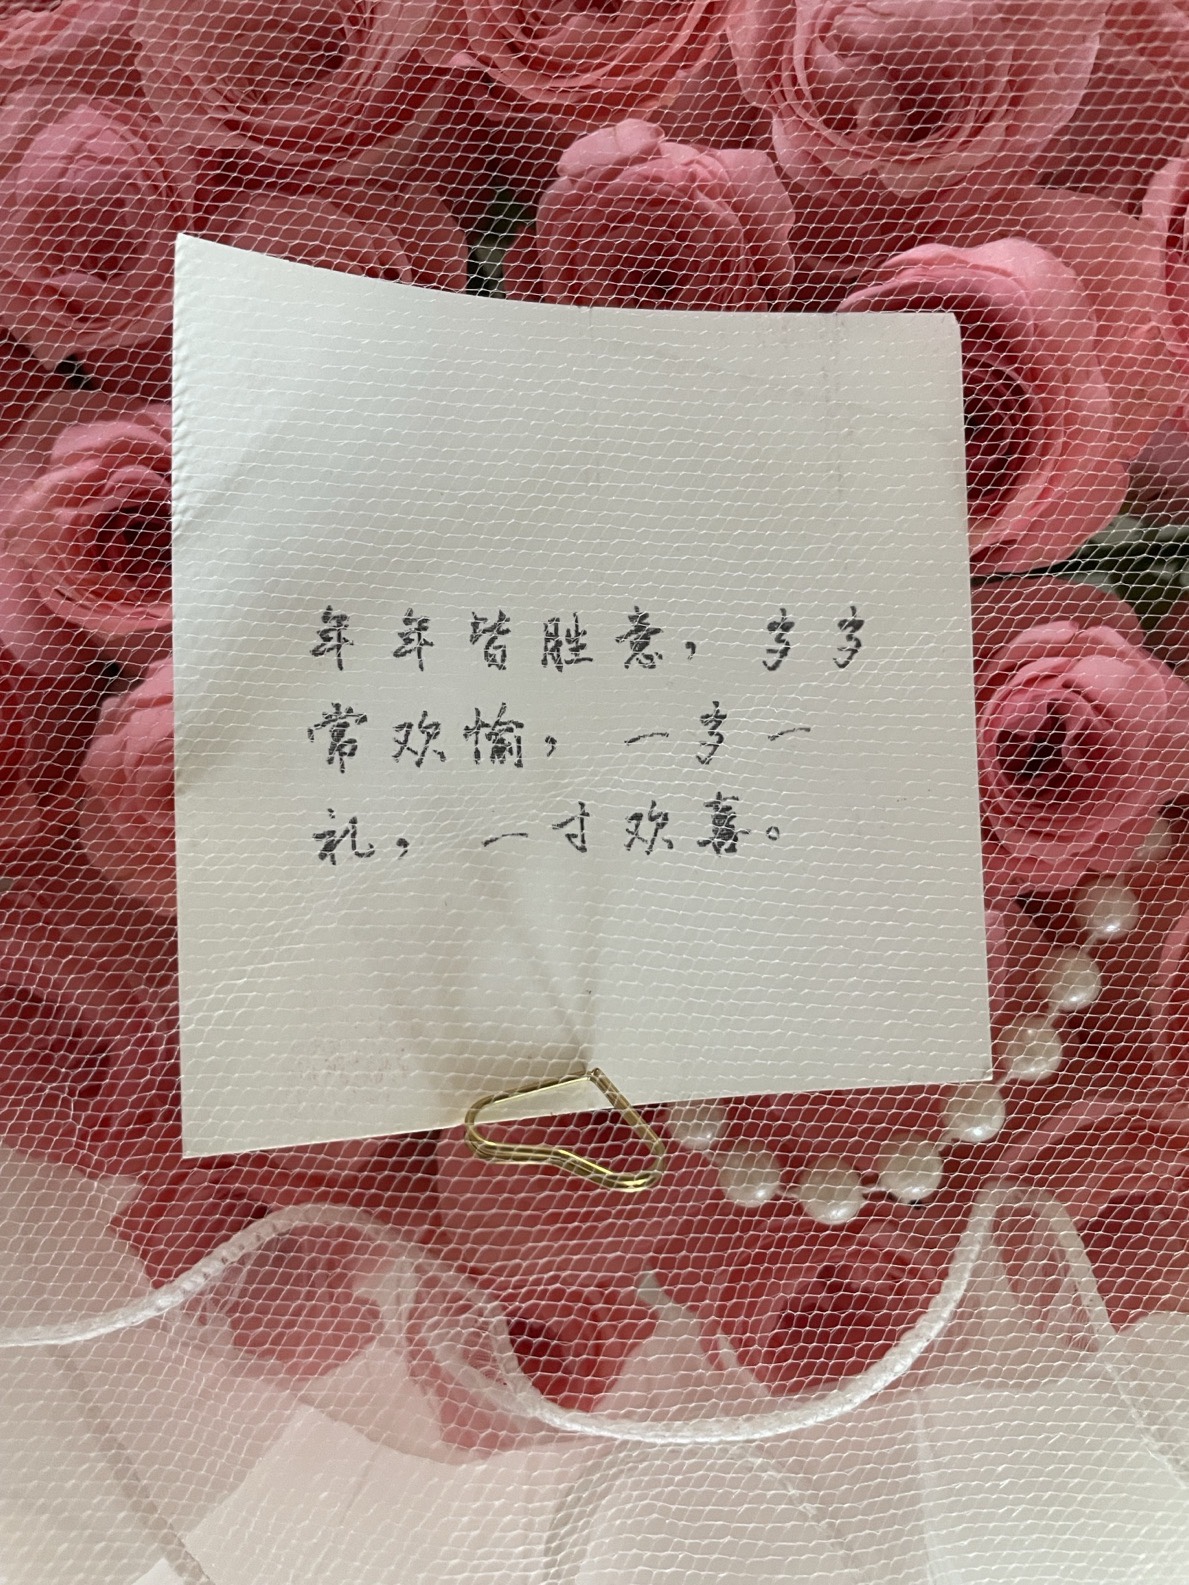 年年皆胜意，岁岁
常欢愉，一岁一
礼，一寸欢喜。